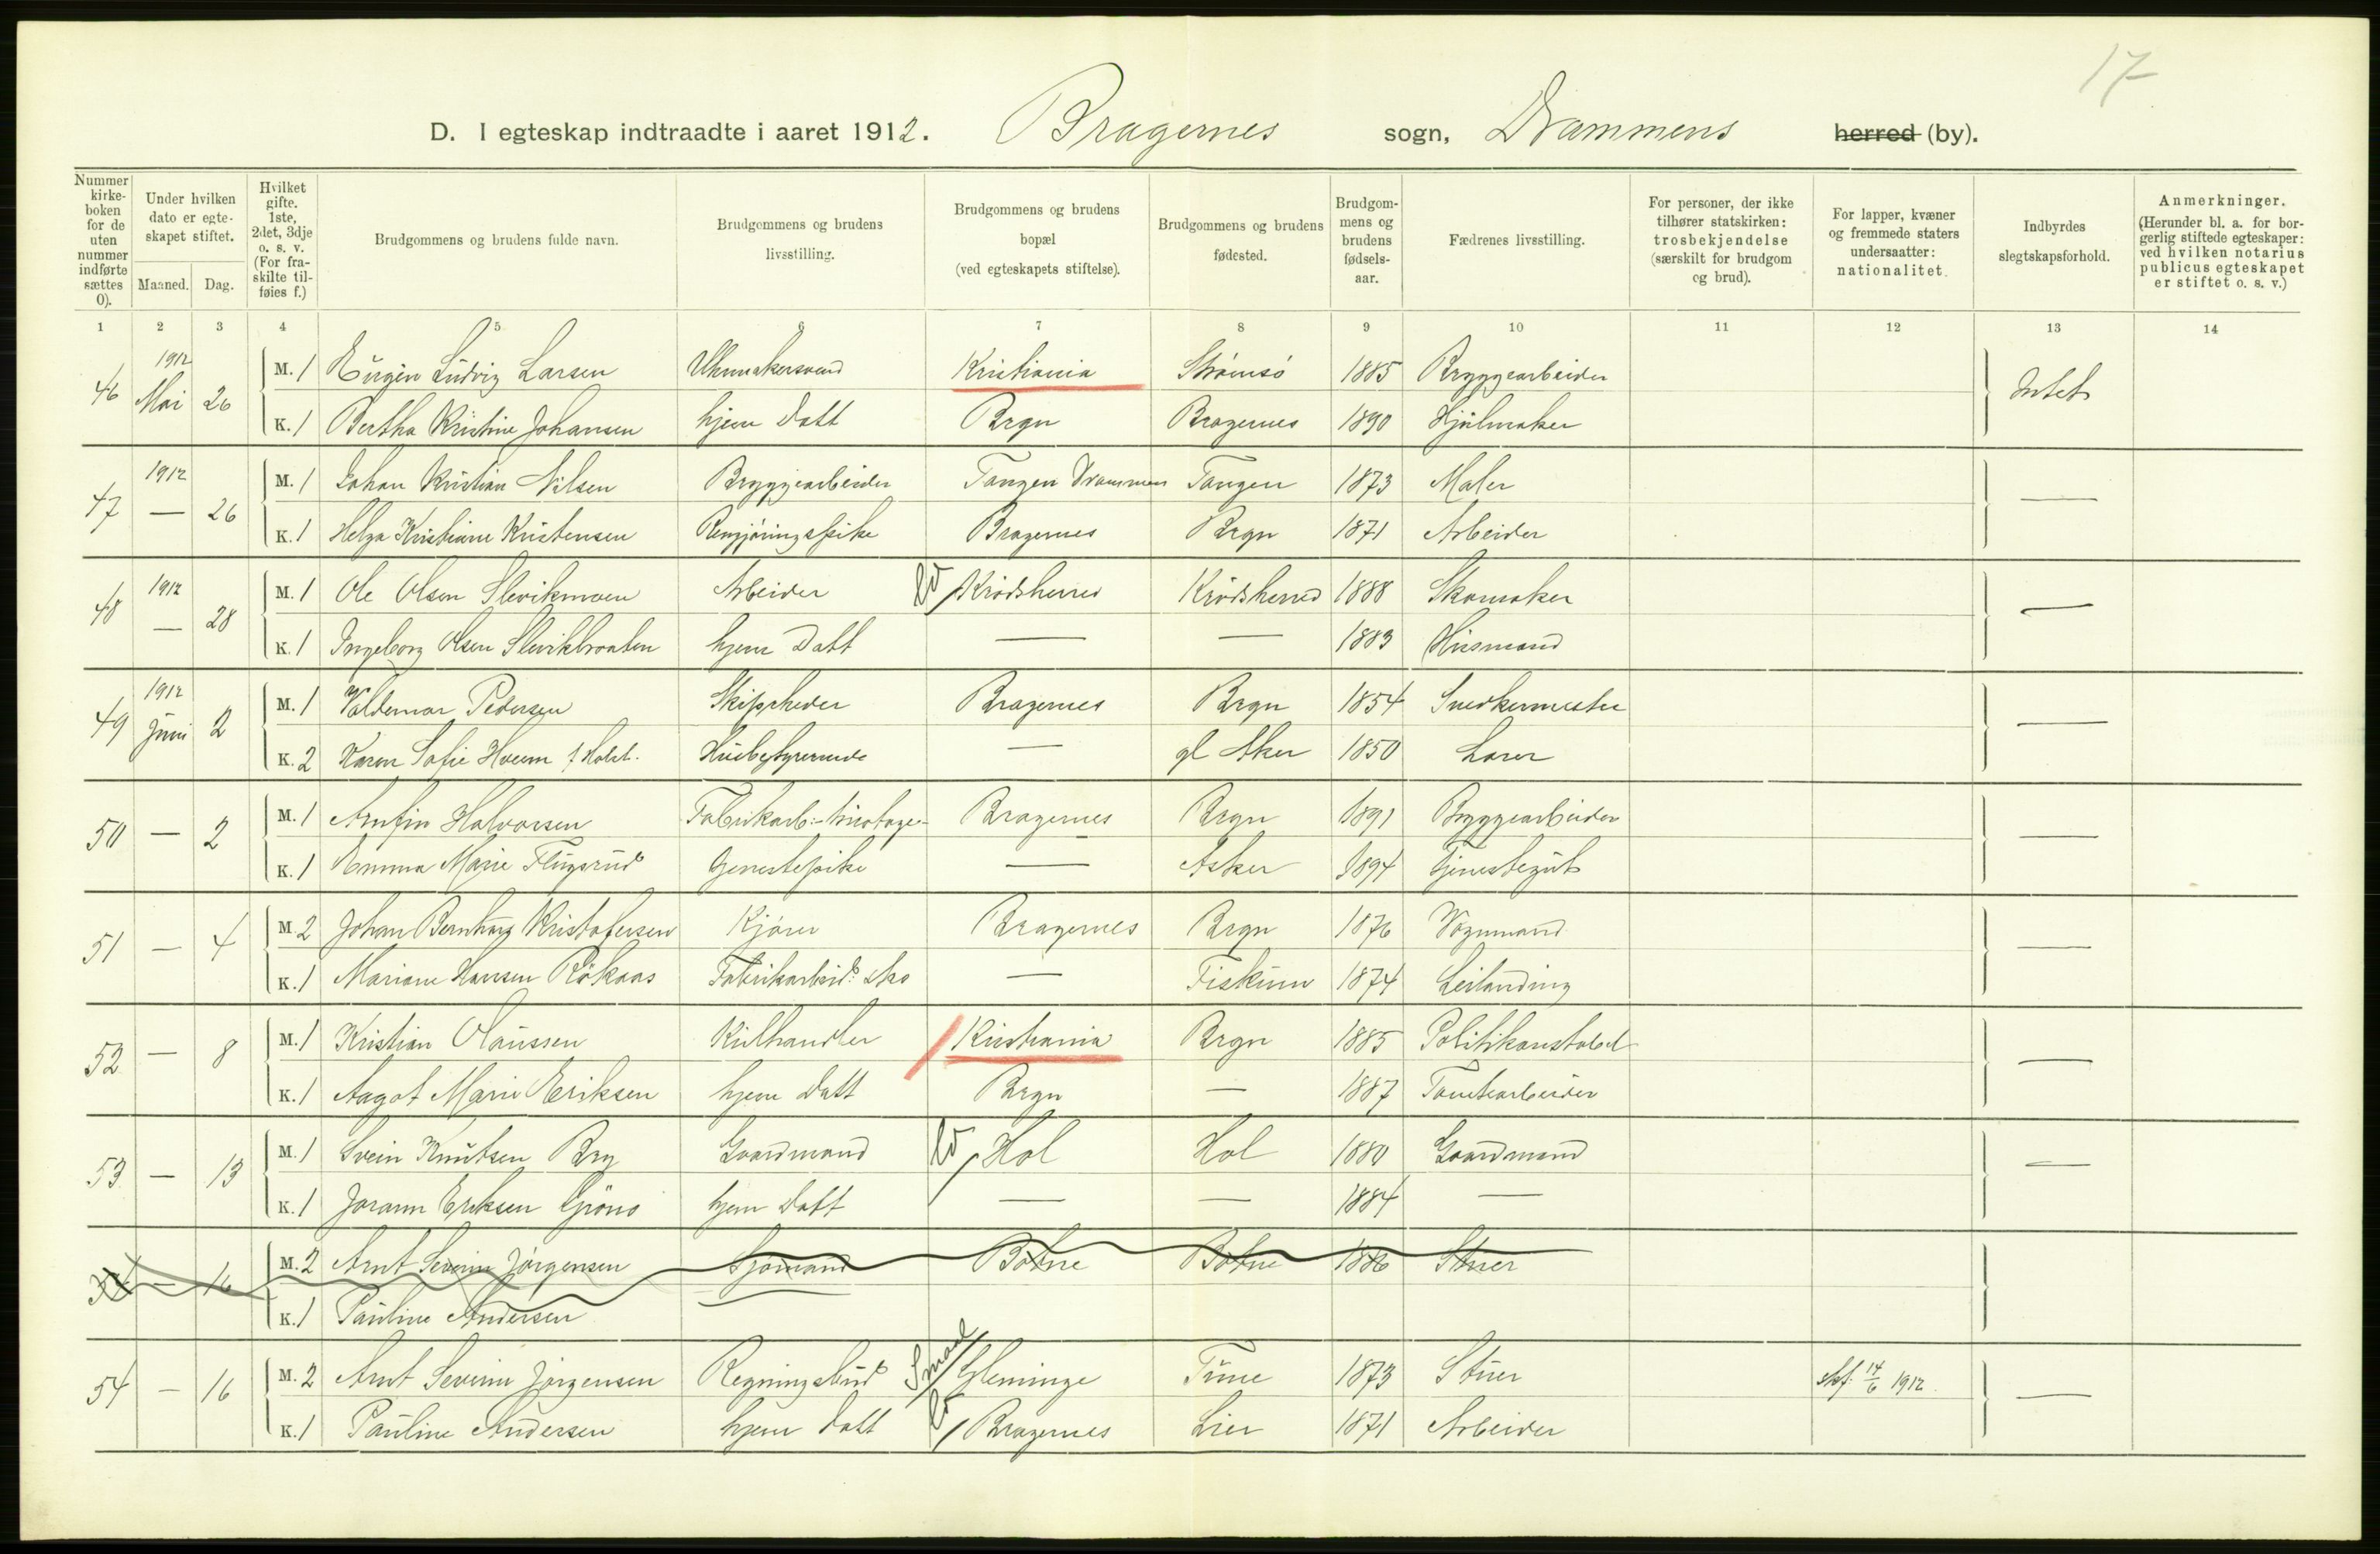 17
D. I egteskap indtraadte i aaret 1912. Bragernes sogn, Drammens herred (by).
Nummer kirke-boken for de uten nummer indførte sættes 0).
Under hvilken dato er egte-skapet stiftet.
Maaned. Dag.
Hvilket gifte. 1ste, 2det, 3dje o. s. v. (For fra-skilte til-føies f.)
Brudgommens og brudens fulde navn.
Brudgommens og brudens livsstilling.
Brudgommens og brudens bopæl (ved egteskapets stiftelse).
Brudgommens og brudens fødested.
Brudgom-mens og brudens fødsels-aar.
Fædrenes livsstilling.
For personer, der ikke tilhører statskirken: trosbekjendelse (særskilt for brudgom og brud).
For lapper, kvæner og fremmede staters undersaatter: nationalitet.
Indbyrdes slegtskapsforhold.
Anmerkninger. (Herunder bl. a. for bor-gerlig stiftede egteskaper: ved hvilken notarius publicus egteskapet er stiftet o. s. v.)
1 2 3 4 5 6 7 8 9 10 11 12 13 14
46 1912 Mai 26 M. 1 Eugen Ludvig Larsen Uhrmakersvend Kristiania Strømsø 1885 Bryggearbeider Intet
K. 1 Bertha Kristine Johansen hjem Datt Brgn Bragernes 1890 Hjulmaker
47 1912 — 26 M. 1 Johan Kristian Nilsen Bryggearbeider Tangen Drammen Tangen 1873 Maler —
K. 1 Helga Kristiane Kristensen Rengjøringspike Bragernes Brgn 1871 Arbeider
48 1912 — 28 M. 1 Ole Olsen Slevikmoen Arbeider Krødsherred Krødsherred 1888 Skomaker —
K. 1 Ingeborg Olsen Slevikbraaten hjem Datt — — 1883 Husmand
49 1912 Juni 2 M. 1 Valdemar Pedersen Skipsrheder Bragernes Brgn 1854 Snedkermester —
K. 2 Karen Sofie Hoem f. Holst. Husbestyrerinde — gl Aker 1850 Lærer
50 — 2 M. 1 Arnfin Halvorsen Fabrikarb:- tricotage- Bragernes Brgn 1891 Bryggearbeider —
K. 1 Emma Marie Flugsrud tjenestepike — Asker 1894 Tjenestegut
51 — 4 M. 2 Johan Bernhard Kristofersen Kjører Bragernes Brgn 1876 Vognmand —
K. 1 Mariane Hansen Røkaas Fabrikarbeid: Sko — Fiskum 1874 Leilænding
52 — 8 M. 1 Kristian Olaussen Kulhandler Kristiania Brgn 1885 Politikonstabel —
K. 1 Aagot Marie Eriksen hjem Datt Brgn — 1887 Tomtearbeider
53 — 13 M. 1 Svein Knutsen Bry Gaardmand Hol Hol 1880 Gaardmand —
K. 1 Jorann Eriksen Grøno hjem Datt — — 1884 —
54 — 16 M. 2 Arnt Severin Jørgensen Sjømand Botne Botne 1886 Stuer
K. 1 Pauline Andersen
54 — 16 M. 2 Arnt Severin Jørgensen Regningsbud Glemminge Tune 1873 Stuer skf. 14/6 1912. —
K. 1 Pauline Andersen hjem Datt Bragernes Lier 1871 Arbeider